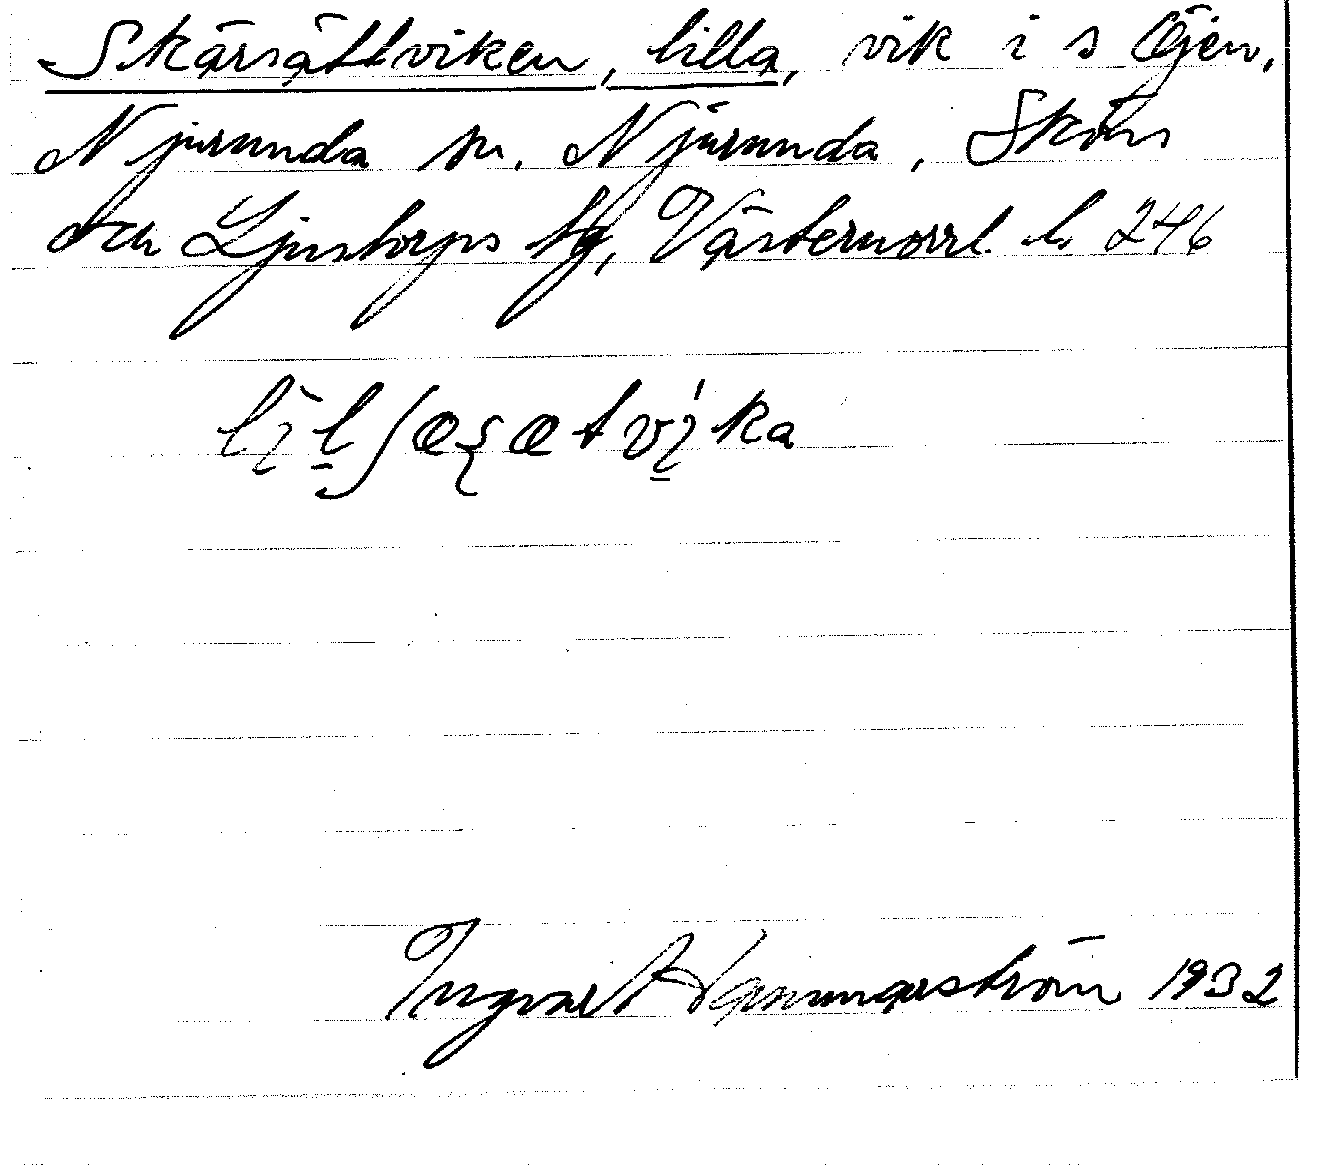 Skärsättviken, lilla, vik i s Öjen,
Njurunda sn. Njurunda, Sköns
och Ljustorps tg, Västernorrl. l. 246
Ingvar Hammarström 1932